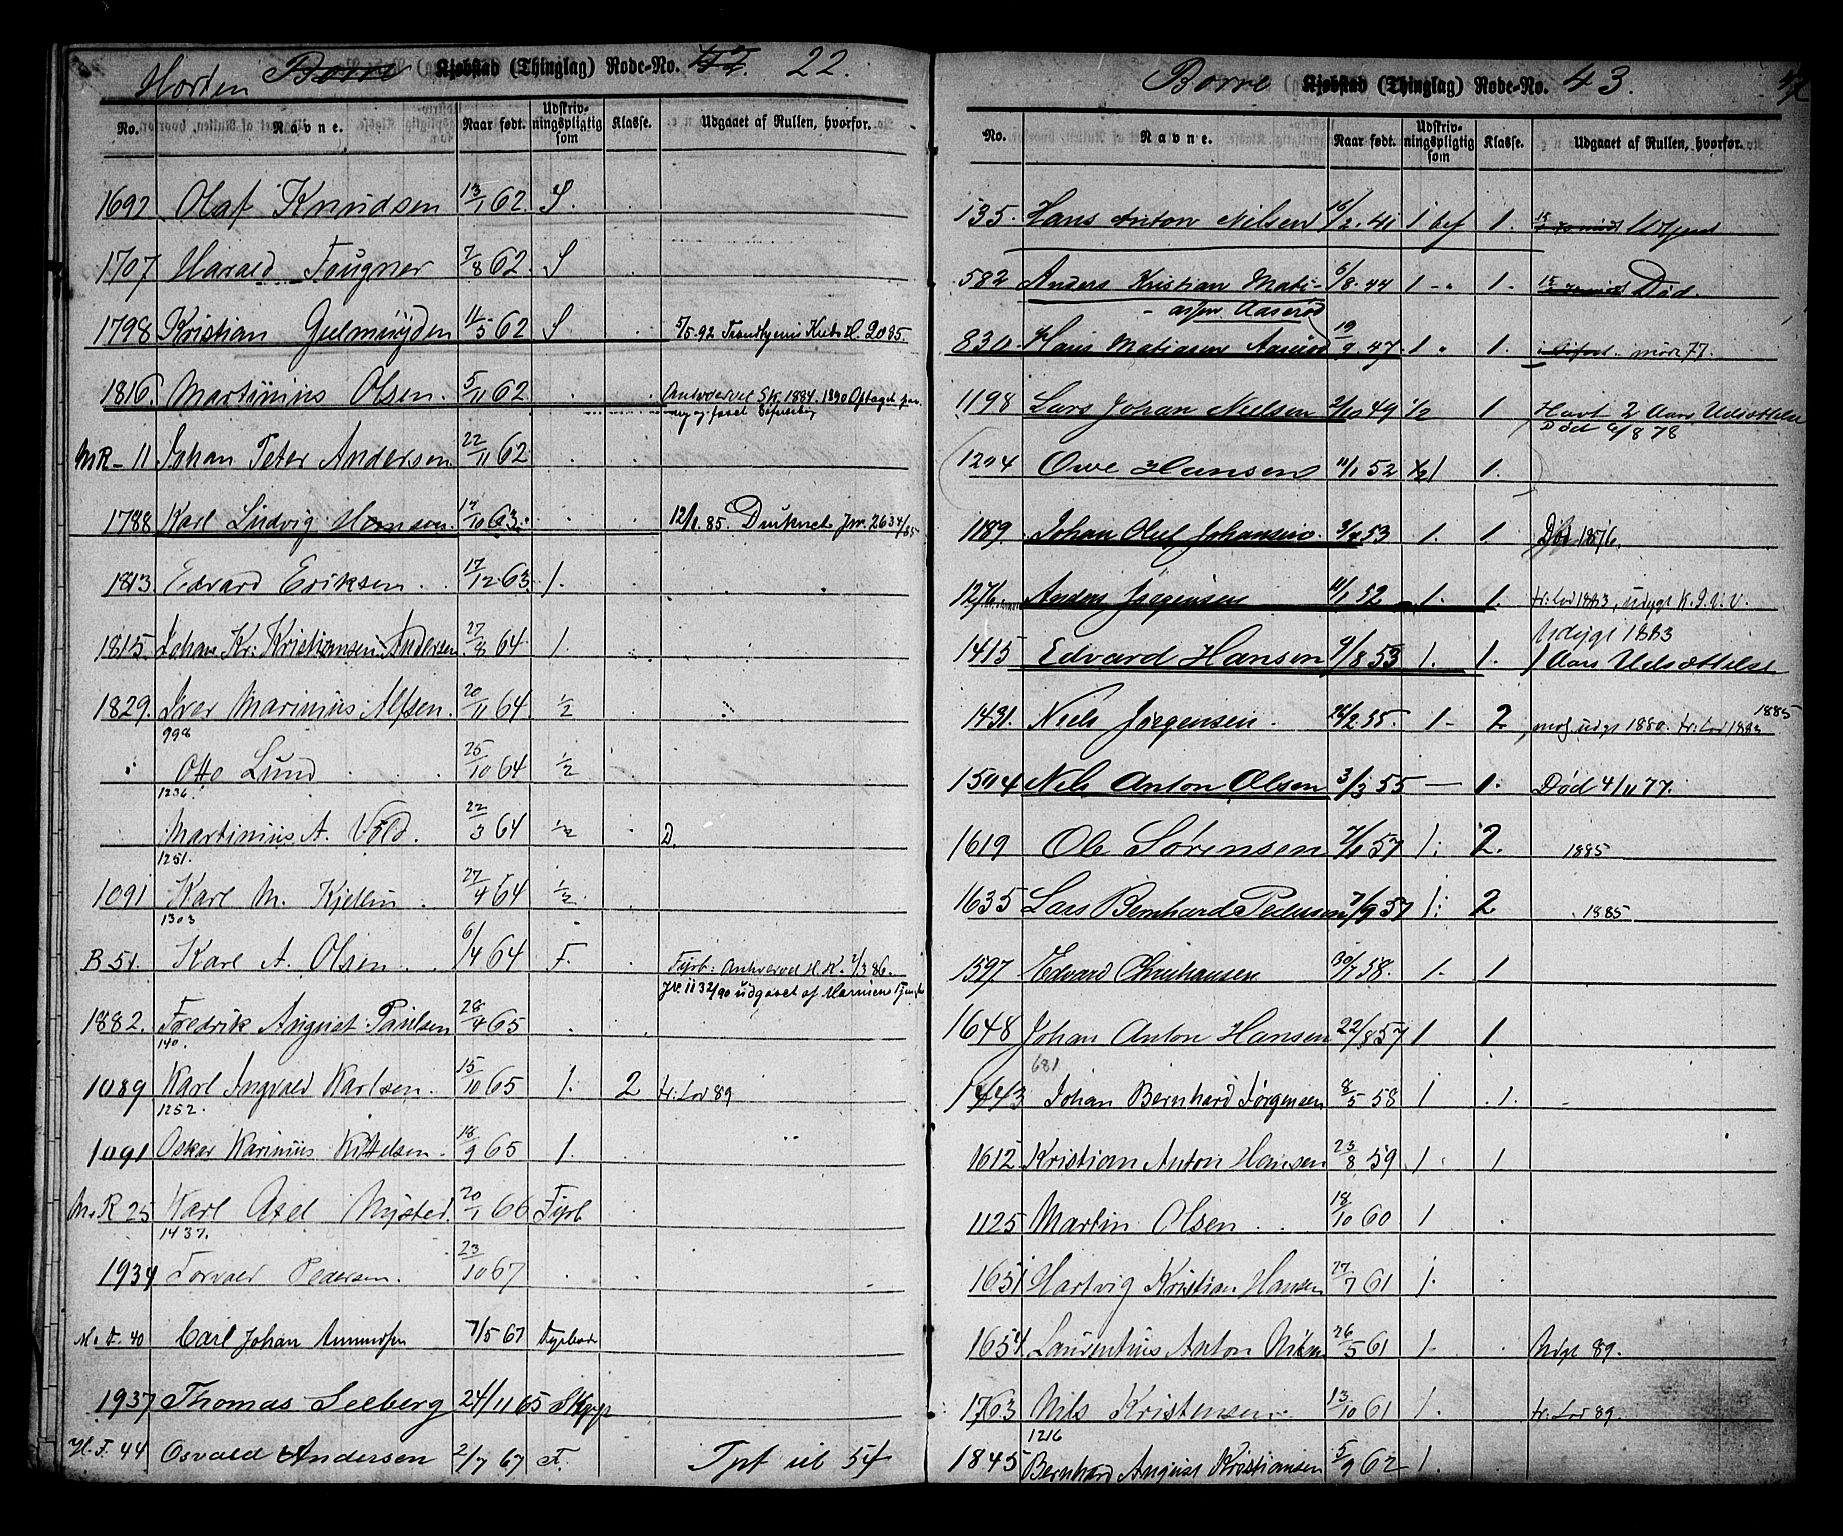 Horten Borre Kjøbstad (Thinglag) Rode-No. 42. 22.
No. Navne. Naar født. Udskrivningspligtig som Klasse. Udgaaet af Rullen, hvorfor.
1692 Olaf Knudsen 13/1 62. S.
1707 Harald Faugner 7/8 62. S
1798 Kristian Gulmoyden 11/5 62 S 5/5 92 Trondhjems Kreds H. 2085.
1816. Martinius Olsen. 5/11 62
MR-11 Johan Peter Andersen 22/11 62
1788 Karl Ludvig Hansen. 17/10 63. 12/1 85. Jn. 2634/85
1813. Edvard Eriksen. 17/12 63. 1.
1815. Johan Kr. Kristiansen Andersen. 27/8 64 1.
1829. Iver Marinius Alfsen. 20/11 64. 1/2
998
" Otto Lund 25/10 64 1/2
1236.
Martinius A. Vold. 22/3 64 1/2 D.
1251.
1091 Karl M. Kjellin. 27/4 64 1/2
1303
B 51. Karl A. Olsen. 6/4 64 F. Fyrb: H.K. 2/3 86.
Jn. 1132/90 udgaaet af Marinens
1882. Fredrik August Paulsen 28/4 65
140.
1089 Karl Ingvald Karlsen. 15/10 65 1. 2 tr: Lod 89
1252.
1091 Oskar Karinius Kittelsen. 18/9 65 1. "
M.R 25 Karl Axel Nysted. 20/1 66 Fyrb
1437.
1934 Torvald Pedersen. 23/10 67
M.F. 40 Carl Johan Amundsen 7/5 67 Fyrbøder
1937 Thomas Seeberg 24/11 65
H.F. 44 Osvald Andersen 2/7 67 F. 54
Borre Kjøbstad (Thinglag) Rode-No. 43.
No. Navne. Naar født. Udskrivningspligtig som Klasse. Udgaaet af Rullen, hvorfor.
135. Hans Anton Nilsen 16/2 41 1 bef 1.
582 Anders Kristian Mati- 6/8 44 1 - " 1. Død.
- assen Aaserød
830 Hans Matiasen Aaserød 19/9 47 1 " 1. 77.
1198 Lars Johan Nielsen 2/10 49 1/2 1. Havt 2 Aars Udsættelse
Død 6/8 78
1204 Owe Hansen 11/1 52 1/2 1 1.
1189. Johan Oluf Johansen. 3/2 53 1. 1. Død 1876.
1276 Anders Jørgensen 11/1 52 1. 1. tr: Lod 1883, udygt K.I.V.V.
Udygt 1883
1415 Edvard Hansen 9/8 53 1. 1. 1 Aars Udsættelse
1431. Niels Jørgensen. 24/2 55. 1- 2 udygt 1880. tr: Lod 1883 1885
1504 Nils Anton Olsen 3/3 55 — 1. Død 4/11 77.
1619 Ole Sørensen 7/1 57 1: 2. 1885
1635 Lars Bernhard Pedersen 7/9 57 1: 2 1885
1597 Edvard Christiansen 30/7 58. 1. 1
1648 Johan Anton Hansen 22/8 57 1 1
681
1443 Johan Bernhard Jørgensen 8/5 58 1 1.
1612. Kristian Anton Hansen 23/8 59 1 1
1125 Martin Olsen 18/10 60 1
1651 Hartvig Kristian Hansen 27/7 61 1.
1654 Laurentius Anton Nilsen 26/5 61 1. Udyt 89.
1763 Nils Kristensen. 13/10 61 1. tr: Lod 89.
1216
1845 Bernhard August Kristiansen 5/9 62 1.